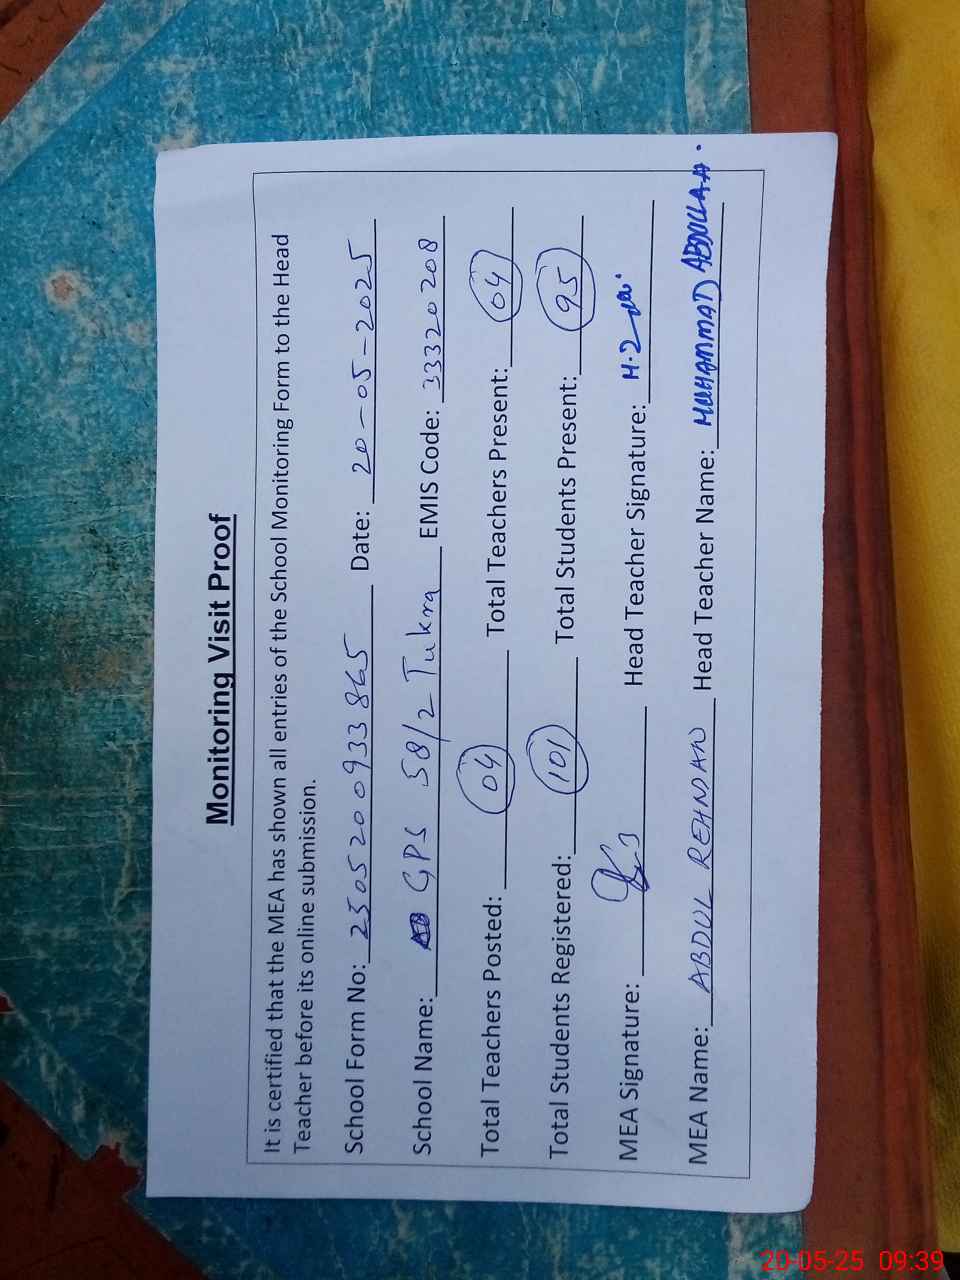 Monitoring Visit Proof
It is certified that the MEA has shown all entries of the School Monitoring Form to the Head
Teacher before its online submission.
School Form No: 250520093 3865 Date: 20-05-2025
School Name: GPS 58/2 Tukra EMIS Code: 33320208
Total Teachers Posted: 04 Total Teachers Present: 04
Total Students Registered: 101 Total Students Present: 95
MEA Signature: Head Teacher Signature:
MEA Name: ABDUL REHMAN Head Teacher Name: MUHAMMAD ABDULLAH.
20-05-25 09:39